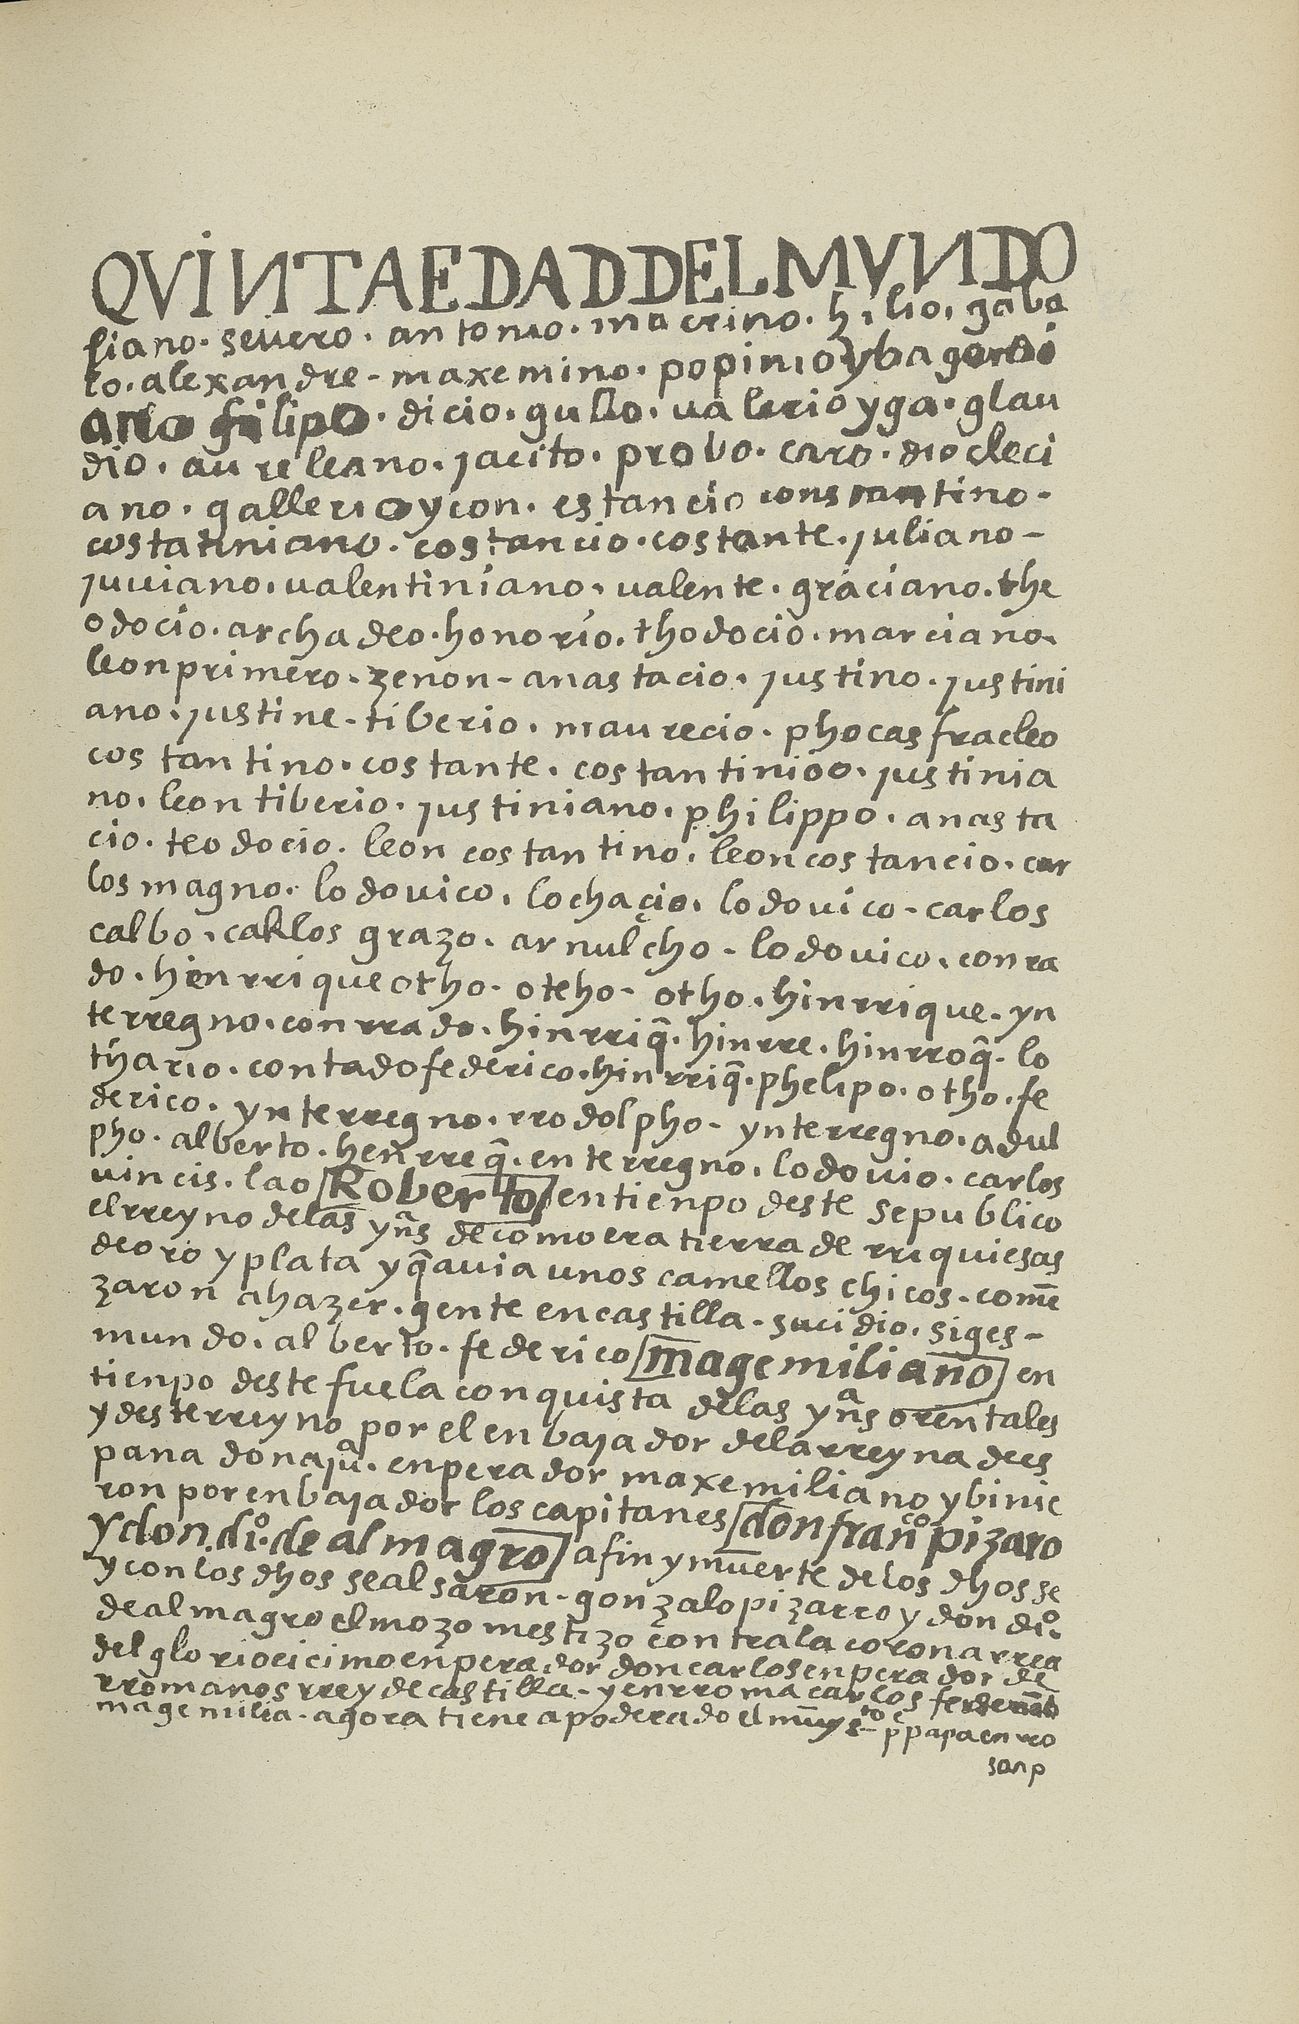 QVINTAEDADDELMVNDO
liano. severo. antonio. macrino. hilio, gaba
lo. alexandre - maxemino. popinio y bagordi
ano filipo. dicio. gullo. valerio y ga. glau
dio. aureleano. jacito. probo. caro. diocleci
ano. gallerio y con. estancio constantino.
costatiniano. costancio. costante. juliano -
juviano. valentiniano. valente. graciano. the
odocio. archadeo. honorío. thodocio. marciano.
leon primero. zenon - anastacio. justino. justini
ano. justine - tiberio. maurecio. phocas fracleo
costantino. costante. costantinioo. justinia
no. leon tiberio. justiniano. philippo. anasta
cio. teodocio. leon costantino. leon costancio. car
los magno. lodovico. lochaçio. lodovico - carlos
calbo. caklos grazo. arnulcho - lodovico. conra
do. hinrrique otho - oteho - otho. hinrrique. yn
terregno. conrrado. hinrriq̃. hinrre. hinrroq̃. lo
thario. contado federico. hinrriq̃. phelipo. otho. fe
derico. ynterregno. rrodolpho - ynterregno. adul
pho. alberto. henrreq̃. enterregno. lodovio. carlos
vincis. lao Roberto en tienpo deste se publico
el rreyno de las yn̄s de como era tierra de rriquiesas
de oro y plata y q̃ avia unos camellos chicos. comē
zaron a hazer. gente en castilla - sucidio. siges -
mundo. alberto. federico magemiliano en
tienpo deste fue la conquista de las ynªs orentales
y deste rreyno por el enbajador de la rreyna de es
pana dona juª. enperador maxemiliano y binie
ron por enbajador los capitanes don franco pizaro
y don. dio. de almagro a fin y muerte de los dhos se
y con los dhos se alsaron - gonzalo pizarro y don dio.
de almagro el mozo mestizo contra la corona rrea
del gloriocicimo enperador don carlos enperador de
rromanos rrey de castilla - y en rroma carlos
magemilia - agora tiene apoderado el muy sto p papa en rro
san p